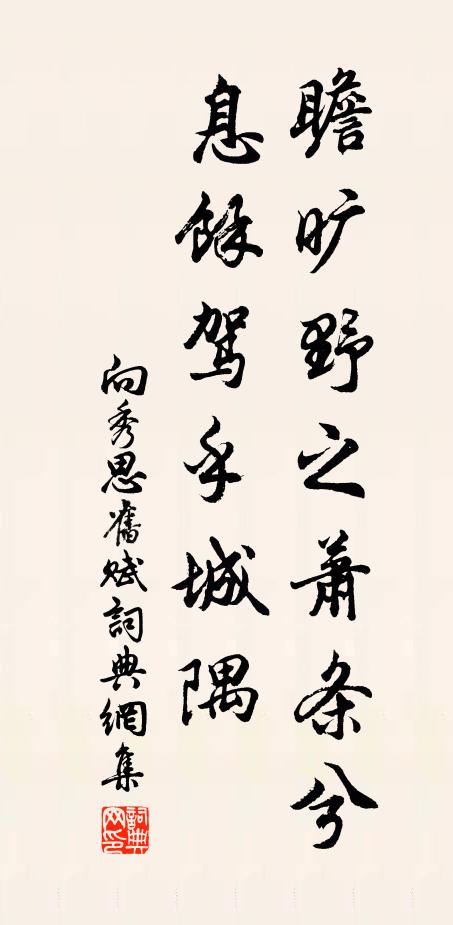 瞻旷野之萧条兮
息餘驾乎城隅
向秀思舊赋詞典網集
詞典网印